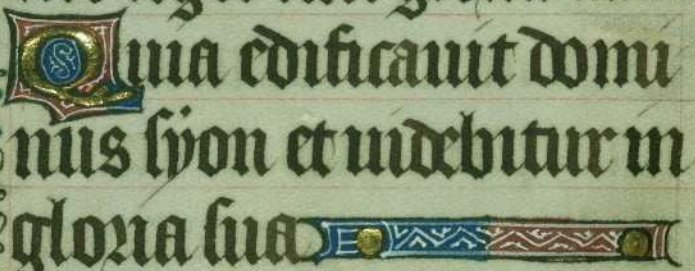 Quia edificauit domi
nus syon et uidebitur in
gloria sua